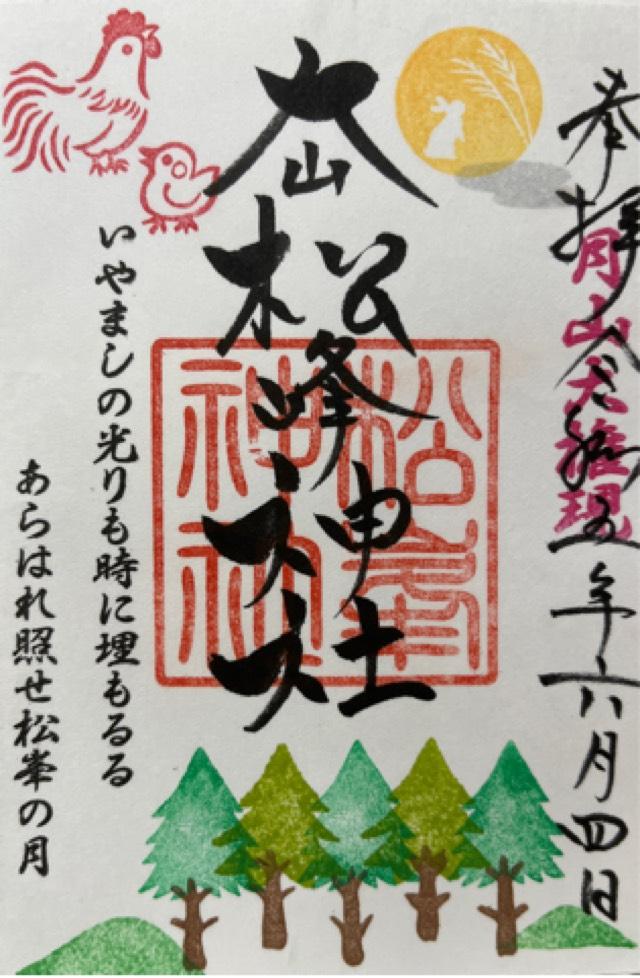 奉拝 令和五年六月四日
月山大権現
松峰神社
松峯
神社
いやましの光りも時に埋もるる
あらはれ照せ松峯の月